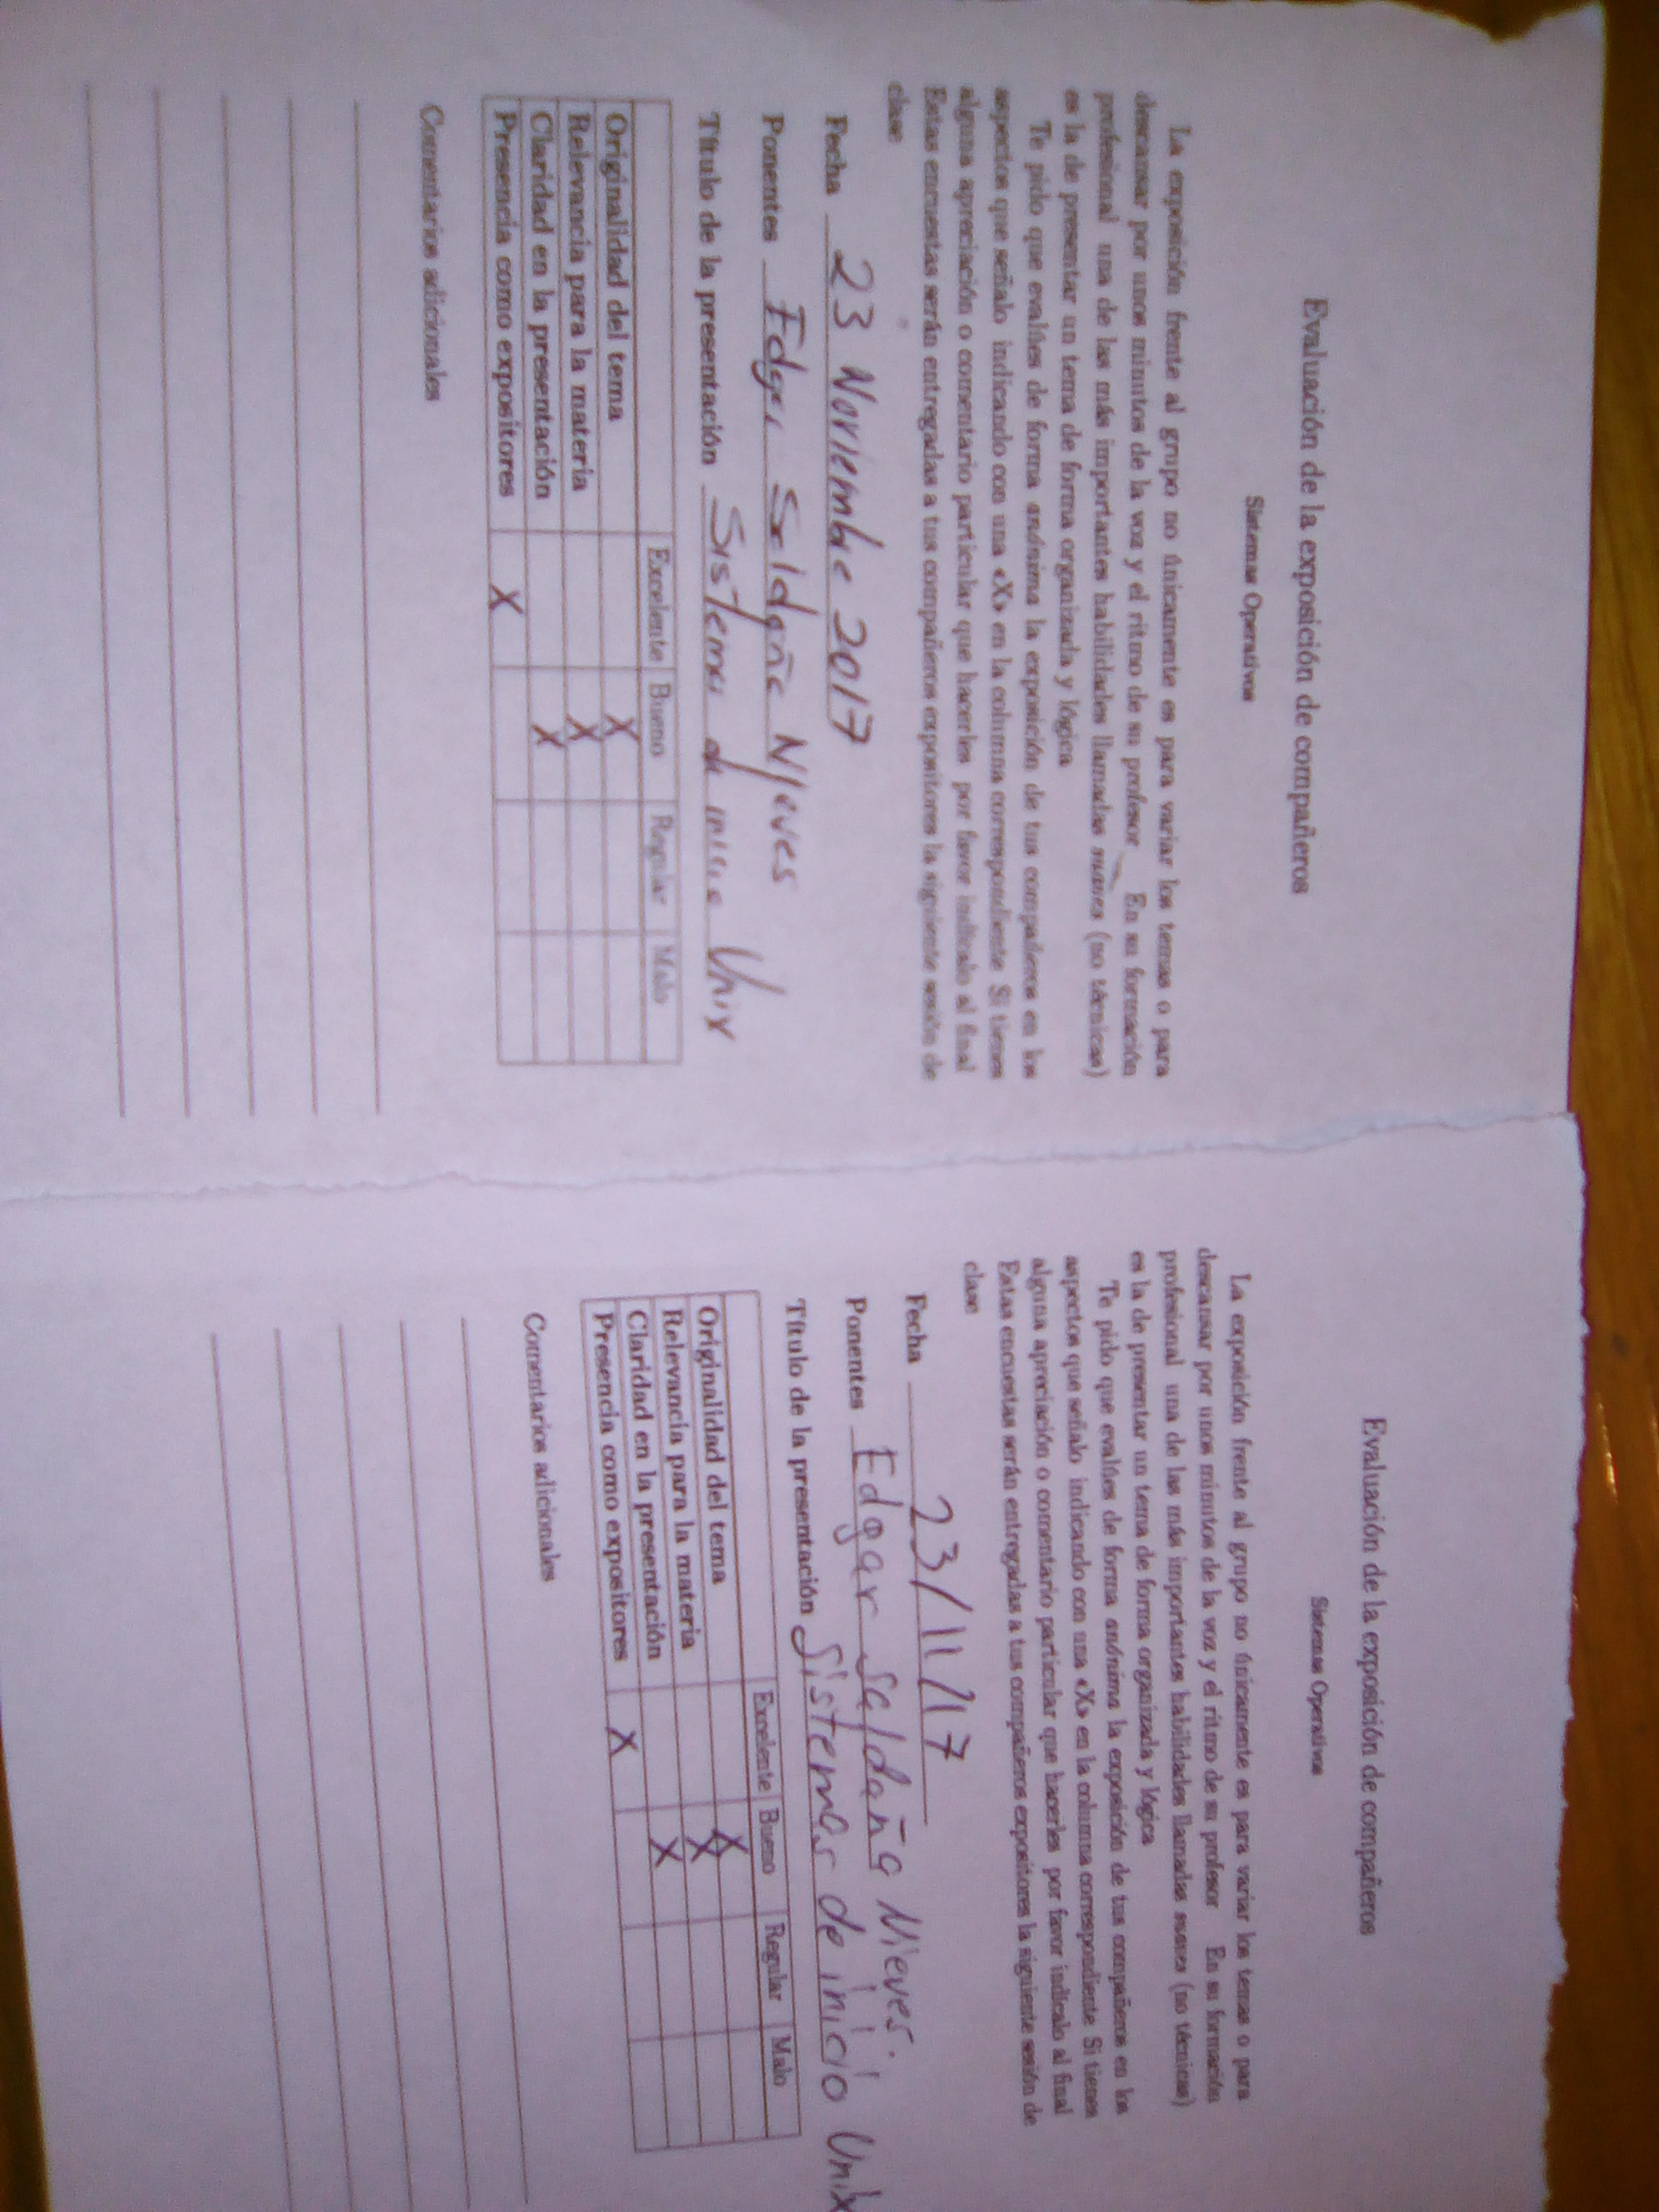 Evaluación de la exposición de compañeros
Sistemas Operativos
La exposición frente al grupo no únicamente es para variar los temas o para
descansar por unos minutos de la voz y el ritmo de su profesor En su formación
profesional una de las más importantes habilidades llamadas suaves (no técnicas)
es la de presentar un tema de forma organizada y lógica
Te pido que evalúes de forma anónima la exposición de tus compañeros en los
aspectos que señalo indicando con una «X» en la columna correspondiente Si tienes
alguna apreciación o comentario particular que hacerles por favor indícalo al final
Estas encuestas serán entregadas a tus compañeros expositores la siguiente sesión de
clase
Fecha 23 Noviembre 2017
Ponentes Edgar Saldaña Nieves
Título de la presentación Sistema de inicio Unix
Excelente Bueno Regular Malo
Originalidad del tema X
Relevancia para la materia X
Claridad en la presentación X
Presencia como expositores X
Comentarios adicionales
Evaluación de la exposición de compañeros
Sistemas Operativos
La exposición frente al grupo no únicamente es para variar los temas o para
descansar por unos minutos de la voz y el ritmo de su profesor En su formación
profesional una de las más importantes habilidades llamadas suaves (no técnicas)
es la de presentar un tema de forma organizada y lógica
Te pido que evalúes de forma anónima la exposición de tus compañeros en los
aspectos que señalo indicando con una «X» en la columna correspondiente Si tienes
alguna apreciación o comentario particular que hacerles por favor indícalo al final
Estas encuestas serán entregadas a tus compañeros expositores la siguiente sesión de
clase
Fecha 23/11/17
Ponentes Edgar Saldaña Nieves.
Título de la presentación Sistemas de inicio Unix
Excelente Bueno Regular Malo
Originalidad del tema X
Relevancia para la materia X
Claridad en la presentación X
Presencia como expositores X
Comentarios adicionales